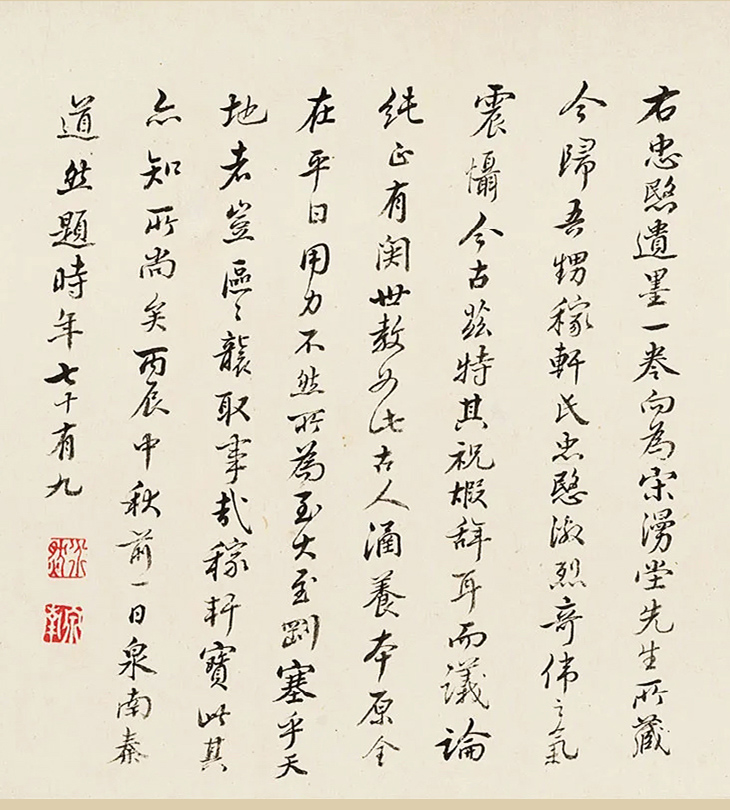 右忠愍遺墨一卷向為宋漫堂先生所藏
今歸吾甥稼軒氏忠愍激烈奇偉之氣
震懾今古茲特其祝嘏辭耳而議論
純正有関世教如此古人涵養本原全
在平日用力不然所為至大至剛塞乎天
地者豈區〻襲取事哉稼軒寶此其
亦知所尚矣丙辰中秋前一日泉南秦
道然題時年七十有九
道然
泉南